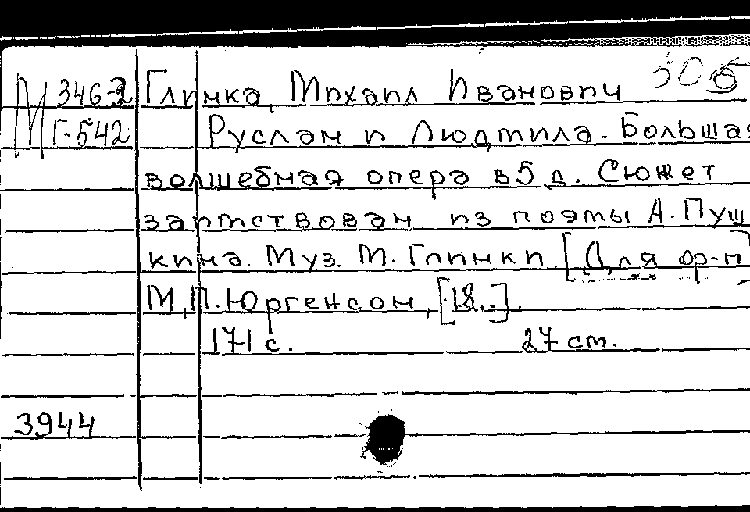 М 346-2 Глинка, Михаил Иванович 505
Г-542 Руслан и Людмила. Большая
волшебная опера в 5 д. Сюжет
заимствован из поэмы А. Пуш
кина. Муз. М. Глинки [Для ор-п]
М., П. Юргенсон, [18..].
171 с. 27 cm.
3944